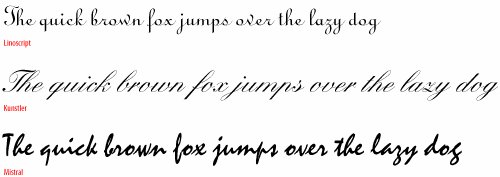 The quick brown fox jumps over the lazy dog
Linoscript
The quick brown fox jumps over the lazy dog
Kunstler
The quick brown fox jumps over the lazy dog
Mistral